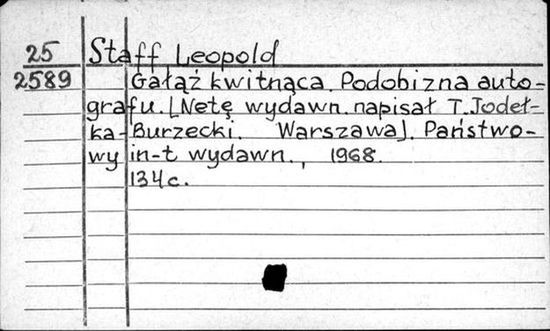 25 Staff Leopold
2589 Gałąź kwitnąca. Podobizna auto-
grafu. [Netę wydawn. napisał T. Jodeł-
ka-Burzecki. Warszawa]. Państwo-
wy in-t wydawn., 1968.
134c.